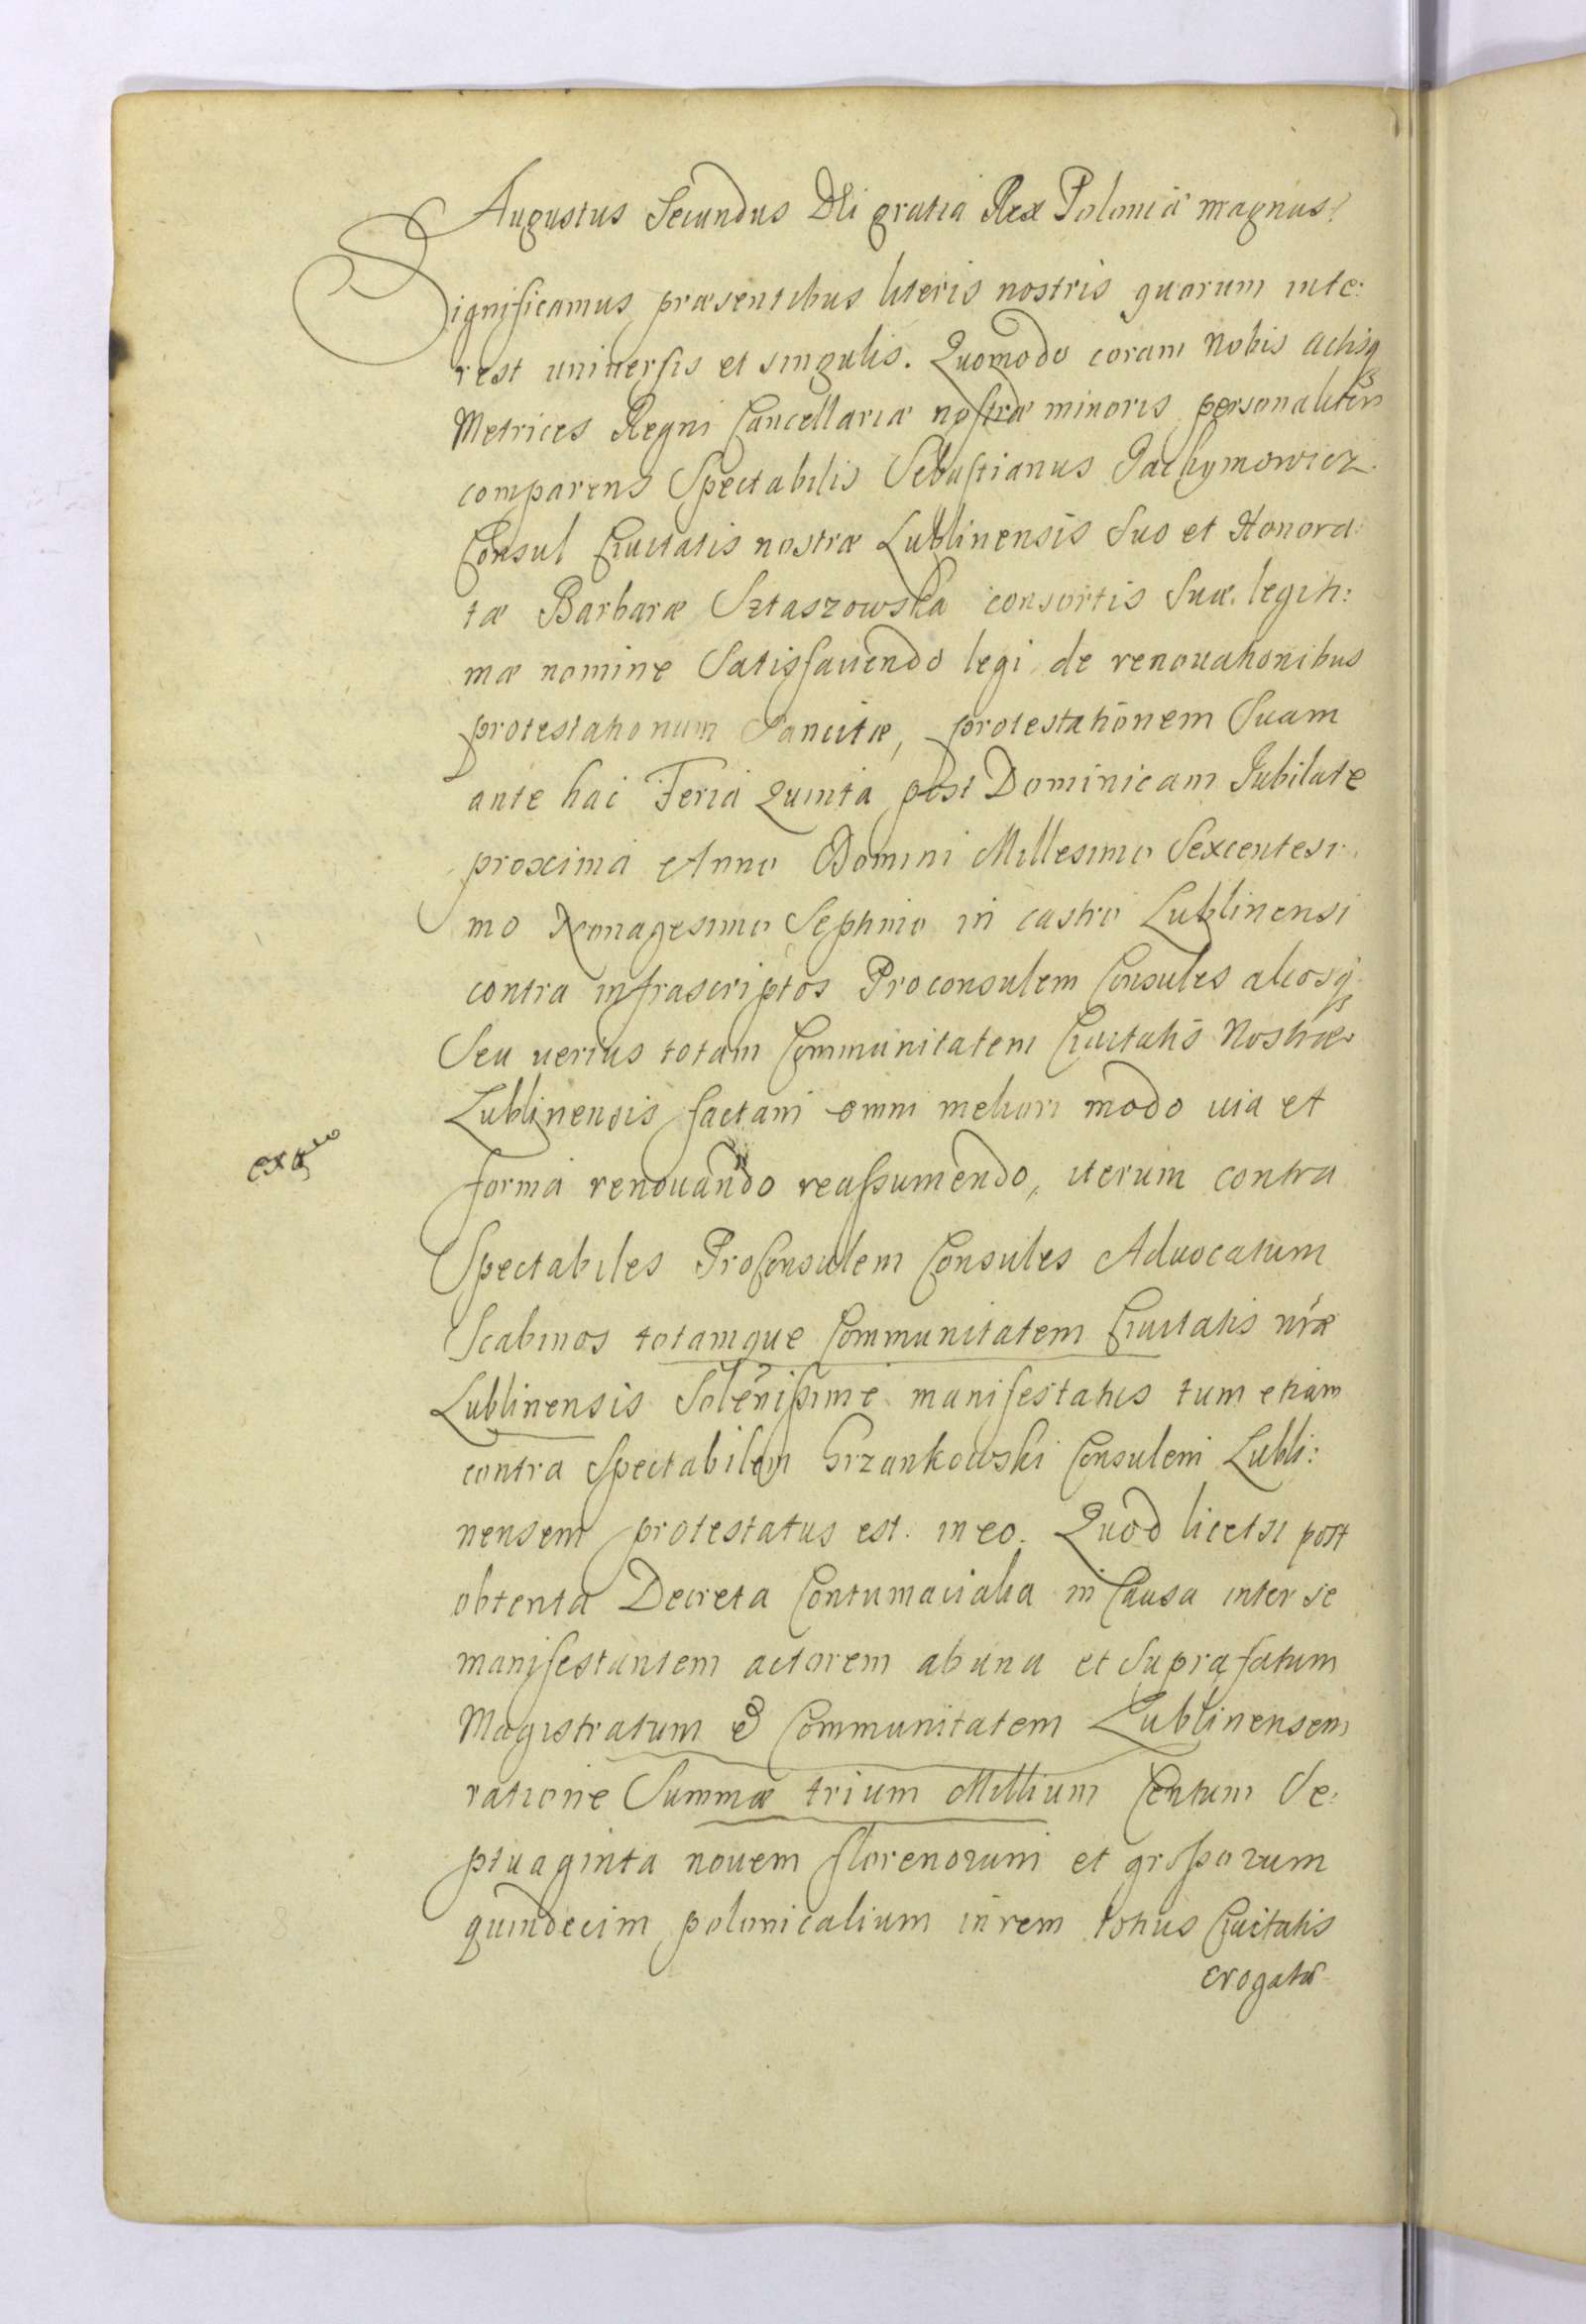 Augustus Secundus Dei gratia Rex Poloniæ magnus
Significamus præsentibus literis nostris quorum inte:
rest uniuersis et singulis. Quomodo coram Nobis actisq
Metrices Regni Cancellariæ nostræ minoris personaliter
comparens Spectabilis Sebastianus Pachymowicz
Consul Ciuitatis nostræ Lublinensis Suo et Honora
tæ Barbaræ Sztaszowska consortis Suæ legiti:
mæ nomine Satisfaciendo legi de renouationibus
protestationum Sancitæ, protestationem Suam
ante hac Feria Quinta post Dominicam Jubilate
proxima Anno Domini Millesimo Sexcentesi
mo Nonagesimo Septimo in castro Lublinensi
contra infrascriptos Proconsulem Consules aliosq
Seu uerius totam Communitatem Ciuitatis Nostræ
Lublinensis factam omni meliori modo uia et
forma renouando reassumendo, iterum contra
Spectabiles ProConsulem Consules Aduocatum
Scabinos totamque Communitatem Ciuitatis nræ
Lublinensis Solenissime manifestatus tum etiam
contra Spectabilem Grzankowski Consulem Lubli:
nensem protestatus est. in eo. Quod licet si post
obtenta Decreta Contumacialia in Causa inter se
manifestantem actorem ab una et Suprafatum
Magistratum & Communitatem Lublinensem
ratione Summæ trium Millium Centum Se:
ptuaginta nouem florenorum et grossorum
quindecim polonicalium in rem totius Ciuitatis
erogatæ